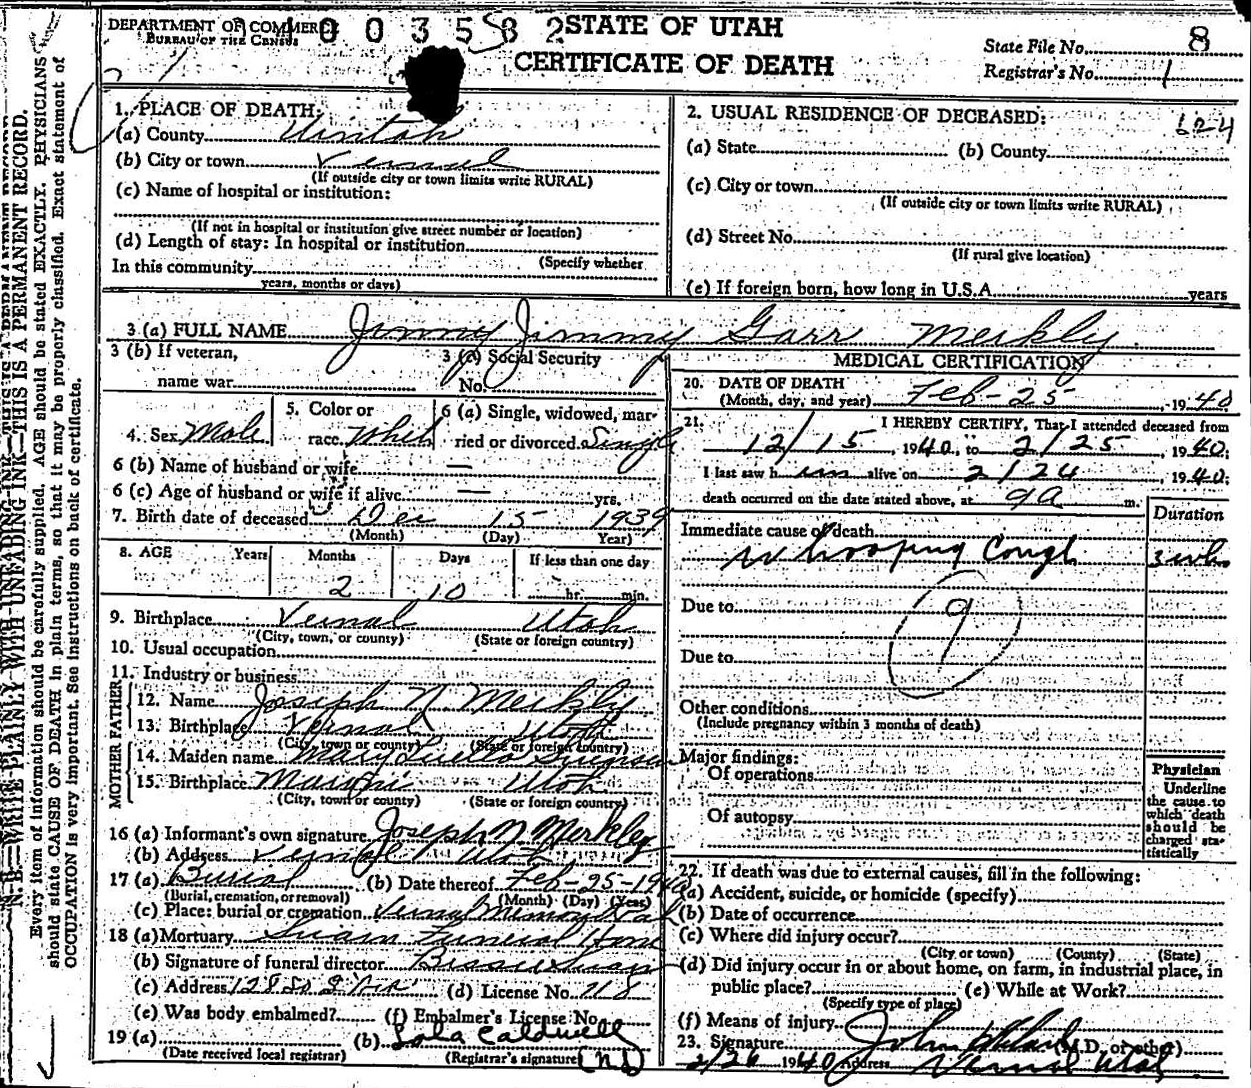 DEPARTMENT OF COMMERCE
BUREAU OF THE CENSUS
4003582
STATE OF UTAH
CERTIFICATE OF DEATH
State File No. 8
Registrar's No. 1
N. B.—WRITE PLAINLY WITH UNFADING INK—THIS IS A PERMANENT RECORD.
Every item of information should be carefully supplied. AGE should be stated EXACTLY. PHYSICIANS
should state CAUSE OF DEATH in plain terms, so that it may be properly classified. Exact statement of
OCCUPATION is very important. See instructions on back of certificate.
1. PLACE OF DEATH:
(a) County Uintah
(b) City or town Vernal
(If outside city or town limits write RURAL)
(c) Name of hospital or institution:
(If not in hospital or institution give street number or location)
(d) Length of stay: In hospital or institution
(Specify whether
In this community
years, months or days)
2. USUAL RESIDENCE OF DECEASED:
624
(a) State (b) County
(c) City or town
(If outside city or town limits write RURAL)
(d) Street No.
(If rural give location)
(e) If foreign born, how long in U.S.A. years
3 (a) FULL NAME Jimmy Jimmy Garr Merkly
3 (b) If veteran,
name war
3 (c) Social Security
No.
4. Sex Male
5. Color or
race Whit
6 (a) Single, widowed, mar-
ried or divorced Single
6 (b) Name of husband or wife —
6 (c) Age of husband or wife if alive — yrs.
7. Birth date of deceased Dec 15 1939
(Month) (Day) Year)
8. AGE Years Months Days If less than one day
2 10 hr. min.
9. Birthplace Vernal Utah
(City, town, or county) (State or foreign country)
10. Usual occupation
11. Industry or business
FATHER
12. Name Joseph N Merkly
13. Birthplace Vernal Utah
(City, town or county) (State or foreign country)
MOTHER
14. Maiden name Mary Luella
15. Birthplace Utah
(City, town or county) (State or foreign country)
16 (a) Informant's own signature Joseph N Merkley
(b) Address Vernal Utah
17 (a) Burial (b) Date thereof Feb-25-1940
(Burial, cremation, or removal) (Month) (Day) (Year)
(c) Place: burial or cremation Vernal Memory Park
18 (a) Mortuary Swain Funeral Home
(b) Signature of funeral director Swain
(c) Address (d) License No. 118
(e) Was body embalmed? (f) Embalmer's License No.
19 (a) (b) Lola Caldwell
(Date received local registrar) (Registrar's signature)
MEDICAL CERTIFICATION
20. DATE OF DEATH
(Month, day, and year) Feb-25, 1940
21. I HEREBY CERTIFY, That I attended deceased from
12/15, 1940, to 2/25, 1940;
I last saw him alive on 2/24, 1940;
death occurred on the date stated above, at 9a m.
Duration
Immediate cause of death
Whooping Cough 3 wk.
Due to 9
Due to
Other conditions
(Include pregnancy within 3 months of death)
Major findings:
Of operations
Of autopsy
Physician
Underline
the cause to
which death
should be
charged sta-
tistically
22. If death was due to external causes, fill in the following:
(a) Accident, suicide, or homicide (specify)
(b) Date of occurrence
(c) Where did injury occur?
(City or town) (County) (State)
(d) Did injury occur in or about home, on farm, in industrial place, in
public place? (e) While at Work?
(Specify type of place)
(f) Means of injury
23. Signature John (M.D. or other)
2/26 1940 Address Vernal Utah